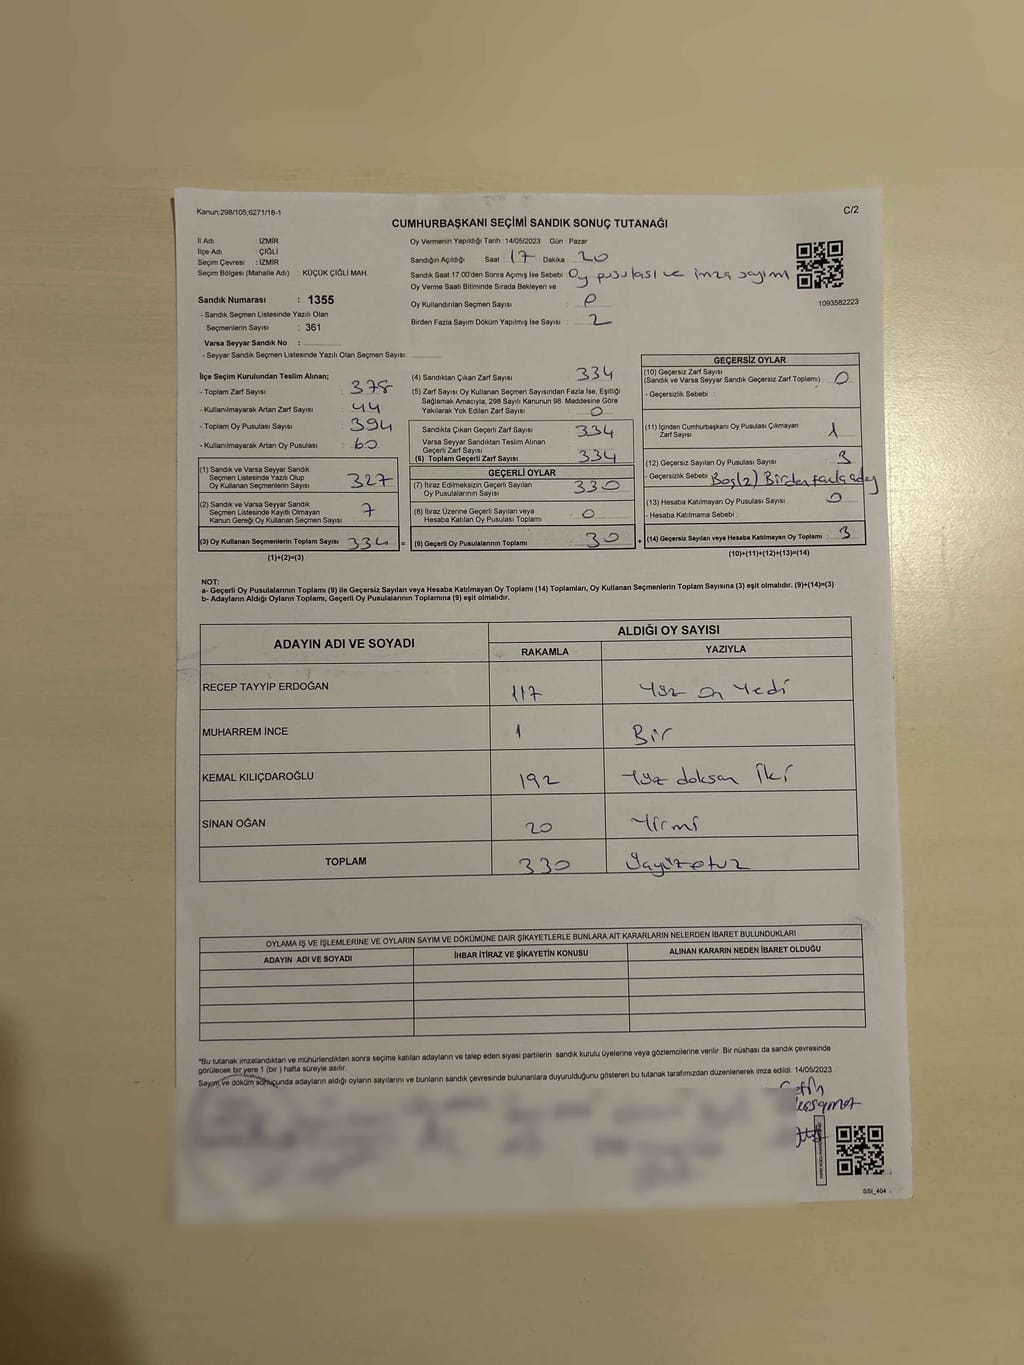 Kanun:298/105;6271/18-1
C/2
CUMHURBAŞKANI SEÇİMİ SANDIK SONUÇ TUTANAĞI
İl Adı : İZMİR
İlçe Adı : ÇİĞLİ
Seçim Çevresi : İZMİR
Seçim Bölgesi (Mahalle Adı) : KÜÇÜK ÇİĞLİ MAH.
Sandık Numarası : 1355
- Sandık Seçmen Listesinde Yazılı Olan
Seçmenlerin Sayısı : 361
Varsa Seyyar Sandık No :
- Seyyar Sandık Seçmen Listesinde Yazılı Olan Seçmen Sayısı :
Oy Vermenin Yapıldığı Tarih : 14/05/2023 Gün : Pazar
Sandığın Açıldığı Saat : 17 Dakika : 20
Sandık Saat 17.00'den Sonra Açımış İse Sebebi : Oy pusulası ve imza sayımı
Oy Verme Saati Bitiminde Sırada Bekleyen ve
Oy Kullandırılan Seçmen Sayısı : 0
Birden Fazla Sayım Döküm Yapılmış İse Sayısı : 2
1093582223
İlçe Seçim Kurulundan Teslim Alınan;
- Toplam Zarf Sayısı : 378
- Kullanılmayarak Artan Zarf Sayısı : 44
- Toplam Oy Pusulası Sayısı : 394
- Kullanılmayarak Artan Oy Pusulası : 60
(1) Sandık ve Varsa Seyyar Sandık
Seçmen Listesinde Yazılı Olup
Oy Kullanan Seçmenlerin Sayısı : 327
(2) Sandık ve Varsa Seyyar Sandık
Seçmen Listesinde Kayıtlı Olmayan
Kanun Gereği Oy Kullanan Seçmen Sayısı : 7
(3) Oy Kullanan Seçmenlerin Toplam Sayısı : 334 =
(1)+(2)=(3)
(4) Sandıktan Çıkan Zarf Sayısı : 334
(5) Zarf Sayısı Oy Kullanan Seçmen Sayısından Fazla İse, Eşitliği
Sağlamak Amacıyla, 298 Sayılı Kanunun 98. Maddesine Göre
Yakılarak Yok Edilen Zarf Sayısı : 0
Sandıkta Çıkan Geçerli Zarf Sayısı : 334
Varsa Seyyar Sandıktan Teslim Alınan
Geçerli Zarf Sayısı :
(6) Toplam Geçerli Zarf Sayısı : 334
GEÇERLİ OYLAR
(7) İtiraz Edilmeksizin Geçerli Sayılan
Oy Pusulalarının Sayısı : 330
(8) İtiraz Üzerine Geçerli Sayılan veya
Hesaba Katılan Oy Pusulası Toplamı : 0
(9) Geçerli Oy Pusulalarının Toplamı : 30 +
GEÇERSİZ OYLAR
(10) Geçersiz Zarf Sayısı
(Sandık ve Varsa Seyyar Sandık Geçersiz Zarf Toplamı) : 0
- Geçersizlik Sebebi :
(11) İçinden Cumhurbaşkanı Oy Pusulası Çıkmayan
Zarf Sayısı : 1
(12) Geçersiz Sayılan Oy Pusulası Sayısı : 3
- Geçersizlik Sebebi : Boş(2) Birden fazla aday
(13) Hesaba Katılmayan Oy Pusulası Sayısı : 0
- Hesaba Katılmama Sebebi :
(14) Geçersiz Sayılan veya Hesaba Katılmayan Oy Toplamı : 3
(10)+(11)+(12)+(13)=(14)
NOT:
a- Geçerli Oy Pusulalarının Toplamı (9) ile Geçersiz Sayılan veya Hesaba Katılmayan Oy Toplamı (14) Toplamları, Oy Kullanan Seçmenlerin Toplam Sayısına (3) eşit olmalıdır. (9)+(14)=(3)
b- Adayların Aldığı Oyların Toplamı, Geçerli Oy Pusulalarının Toplamına (9) eşit olmalıdır.
ADAYIN ADI VE SOYADI
ALDIĞI OY SAYISI
RAKAMLA YAZIYLA
RECEP TAYYİP ERDOĞAN 117 Yüz on Yedi
MUHARREM İNCE 1 Bir
KEMAL KILIÇDAROĞLU 192 Yüz doksan İki
SİNAN OĞAN 20 Yirmi
TOPLAM 330 Üçyüzotuz
OYLAMA İŞ VE İŞLEMLERİNE VE OYLARIN SAYIM VE DÖKÜMÜNE DAİR ŞİKAYETLERLE BUNLARA AİT KARARLARIN NELERDEN İBARET BULUNDUKLARI
ADAYIN ADI VE SOYADI İHBAR İTİRAZ VE ŞİKAYETİN KONUSU ALINAN KARARIN NEDEN İBARET OLDUĞU
*Bu tutanak imzalandıktan ve mühürlendikten sonra seçime katılan adayların ve talep eden siyasi partilerin sandık kurulu üyelerine veya gözlemcilerine verilir. Bir nüshası da sandık çevresinde
görülecek bir yere 1 (bir ) hafta süreyle asılır.
Sayım ve döküm sonucunda adayların aldığı oyların sayılarını ve bunların sandık çevresinde bulunanlara duyurulduğunu gösteren bu tutanak tarafımızdan düzenlenerek imza edildi. 14/05/2023
SSI_404